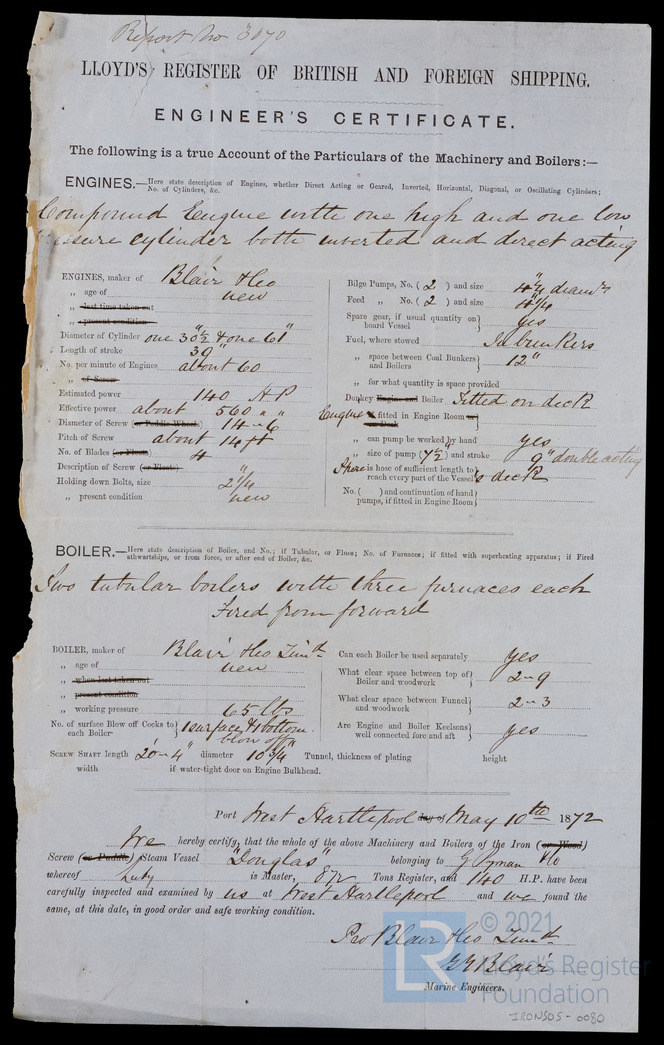 Report No 3070
LLOYD'S REGISTER OF BRITISH AND FOREIGN SHIPPING.
ENGINEER'S CERTIFICATE.
The following is a true Account of the Particulars of the Machinery and Boilers:—
ENGINES.—Here state description of Engines, whether Direct Acting or Geared, Inverted, Horizontal, Diagonal, or Oscillating Cylinders;
No. of Cylinders, &c.
Compound Engine with one high and one low
pressure cylinder both inverted and direct acting
ENGINES, maker of Blair & Co
„ age of new
„ last time taken out
„ present condition
Diameter of Cylinder one 30½" & one 61"
Length of stroke 39"
No. per minute of Engines about 60
„ of Screw
Estimated power 140 HP
Effective power about 560 „ „
Diameter of Screw (or Paddle Wheels) 14-6
Pitch of Screw about 14 ft
No. of Blades (or Floats) 4
Description of Screw (or Floats)
Holding down Bolts, size 2¼"
„ present condition new
Bilge Pumps, No. ( 2 ) and size 4¼" diamr
Feed „ No. ( 2 ) and size 4¼"
Spare gear, if usual quantity on
board Vessel yes
Fuel, where stowed In bunkers
„ space between Coal Bunkers
and Boilers 12"
„ for what quantity is space provided
Donkey Engine and Boiler Fitted on deck
Engine fitted in Engine Room or
on Deck
„ can pump be worked by hand yes
„ size of pump (7½") and stroke 9" double acting
There is hose of sufficient length to
reach every part of the Vessel's deck
No. ( ) and continuation of hand
pumps, if fitted in Engine Room
BOILER.—Here state description of Boiler, and No.; if Tubular, or Flues; No. of Furnaces; if fitted with superheating apparatus; if Fired
athwartships, or from force, or after end of Boiler, &c.
Two tubular boilers with three furnaces each
Fired from forward
BOILER, maker of Blair & Co Limth
„ age of new
„ when last taken out
„ present condition
„ working pressure 65 lbs
No. of surface Blow off Cocks to
each Boiler 1 surface & 1 bottom
blow off
Can each Boiler be used separately yes
What clear space between top of
Boiler and woodwork 2-9
What clear space between Funnel
and woodwork 2-3
Are Engine and Boiler Keelsons
well connected fore and aft yes
SCREW SHAFT length 20-4" diameter 10¾" Tunnel, thickness of plating height
width if water-tight door on Engine Bulkhead.
Port West Hartlepool day of May 10th 1872
We hereby certify, that the whole of the above Machinery and Boilers of the Iron (or Wood)
Screw (or Paddle) Steam Vessel "Douglas" belonging to G Pyman & Co
whereof is Master, 872 Tons Register, and 140 H.P. have been
carefully inspected and examined by us at West Hartlepool and we found the
same, at this date, in good order and safe working condition.
Pro Blair & Co Limth
G Y Blair
Marine Engineers.
LR © 2021
Lloyd's Register
Foundation
IRONS05-0080